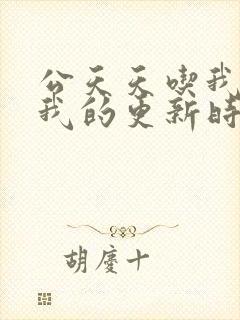 公天天喫我
我的更新時
胡慶十